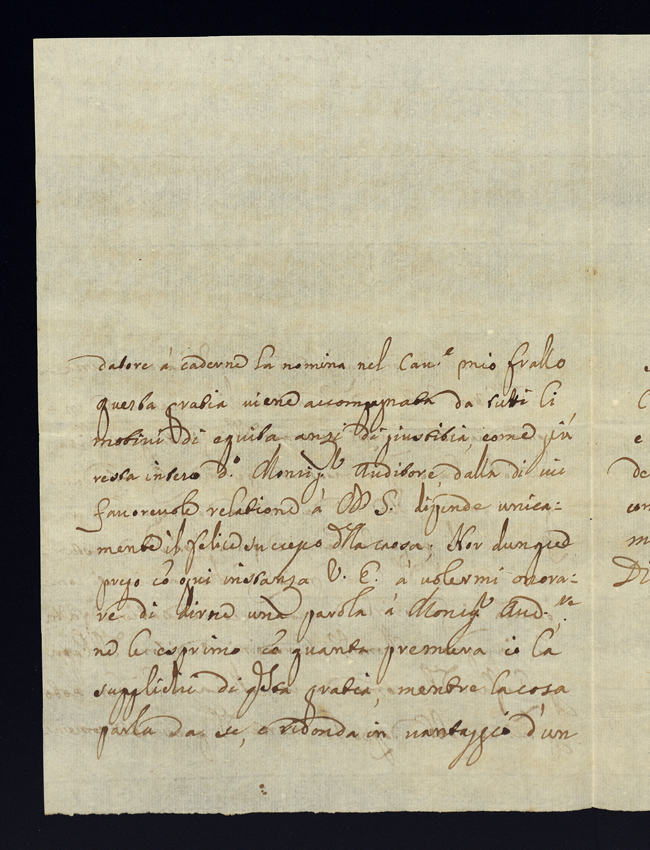 datore á caderne la nomina nel Cav.e mio frallo
questa gratia viene accompagnata da tutti li
motivi di equita, anzi di giustitia, come più
resta inteso d.o Monsig.r Auditore, dalla di cui
favorevole relatione á S. dipende unica=
mente il felice successo della causa; Hor dunque
prego cõ ogni instanza V. E. á volermi onora=
re di dirne una parola á Monsig.r Aud.re
ne le esprimo cõ quanta premura io la
supplichi di qsta gratia, mentre la cosa
parla da se, e ridonda in vantaggio d'un
e
de
con
m
Di